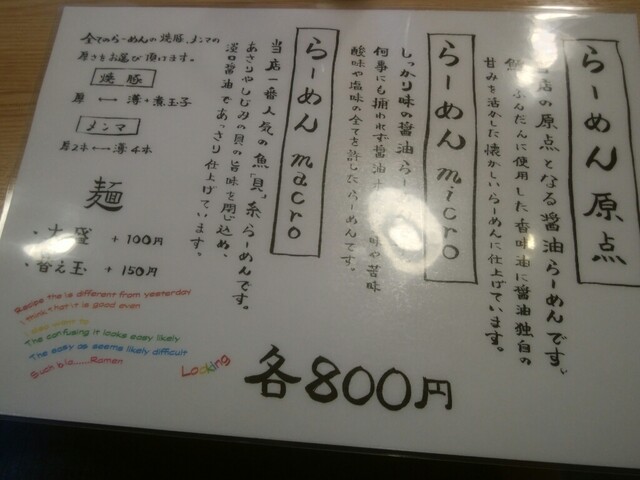 らーめん 原点
当店の原点となる醤油らーめんです。
ふんだんに使用した香味油に醤油独自の
甘みを活かした懐かしいらーめんに仕上げています。
らーめん micro
しっかり味の醤油らー
何事にも捕われず醤油 味や苦味
酸味や塩味の全てを許したらーめんです。
らーめん macro
当店一番人気の魚「貝」系らーめんです。
あさりやしじみの貝の旨味を閉じ込め、
濃口醤油であっさり仕上げています。
全てのらーめんの焼豚、メンマの
厚さをお選び頂けます。
焼豚
厚 ←→ 薄+煮玉子
メンマ
厚2本 ←→ 薄4本
麺
・大盛 +100円
・替え玉 +150円
Recipe the is different from yesterday
I think that it is good even
The confusing it looks easy likely
The easy as seems likely difficult
Such bla.....Ramen
Looking
各800円